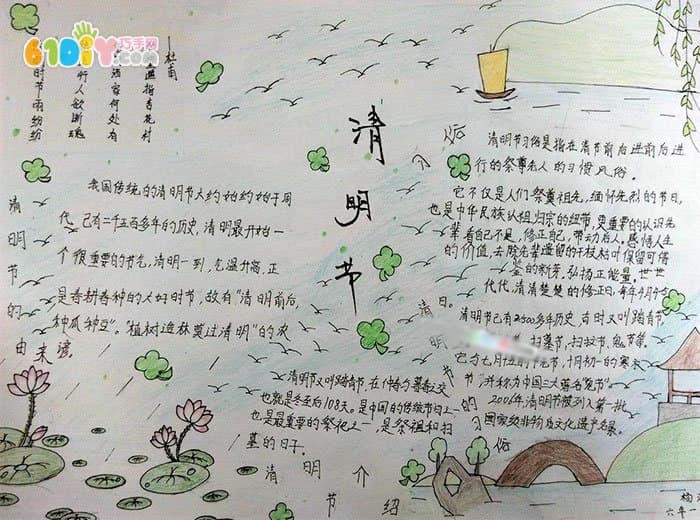 61DIY.com
巧手网
——杜甫
时节雨纷纷
行人欲断魂
何处有
遥指杏花村
清明节
清明节的由来
我国传统的清明节大约始约始于周
代,己有二千五百多年的历史,清明最开始一
个很重要的节气,清明一到,气温升高,正
是春耕春种的大好时节,故有"清明前后,
种瓜种豆"。"植树造林莫过清明"的农
谚。
清明节又叫踏青节,在仲春与暮春之交
也就是冬至后108天。是中国的传统节日之一
也是最重要的祭祀之一,是祭祖和扫
墓的日子。
清明节介绍
介
俗
清明节习俗是指在清节前后进前后进
行的祭尊先人的习惯风俗。
它不仅是人们祭奠祖先,缅怀先烈的节日,
也是中华民族认祖归宗的纽带,更重要的认识先
辈看自己不足,修正自己,带动后人,感悟人生
的价值,去除先辈遗留的干枝枯叶保留可借
鉴的新芽,弘扬正能量,世世
代代,清清楚楚的修正日,每年4月
日。
清明节己有2500多年历史,古时又叫踏青节
扫墓节、扫坟节、鬼节等。
它与七月伍的中元节、十月初一的寒衣
节,并称为中国三大著名"鬼节"
2006年清明节被列入第一批
国家级非物质文化遗产名录。
清明节的习俗
六年一